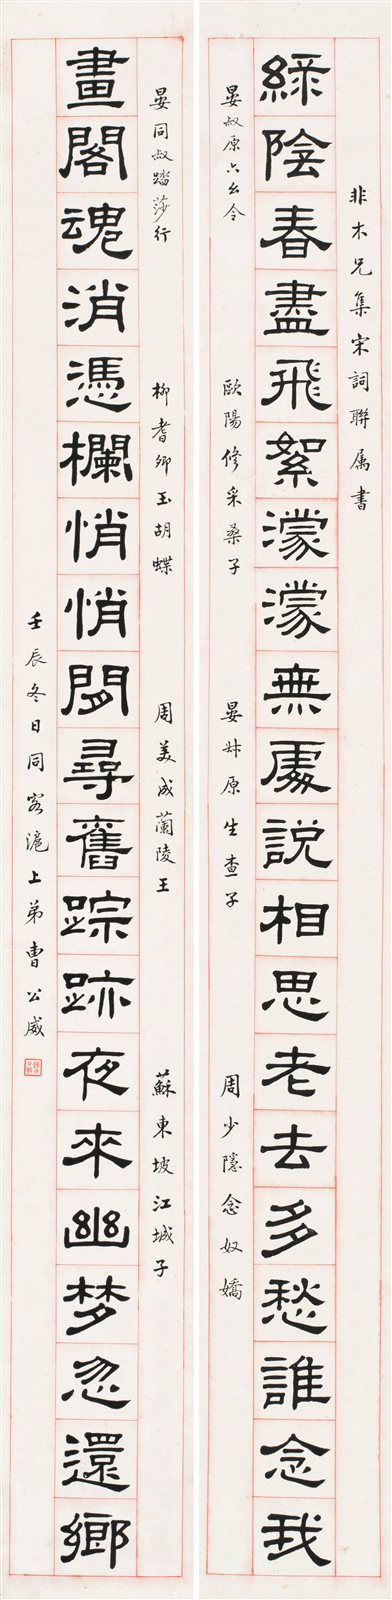 非木兄集宋詞聯属書
綠陰春盡飛絮濛濛無處說相思老去多愁誰念我
晏叔原六幺令 歐陽修采桑子 晏叔原生查子 周少隱念奴嬌
晏同叔踏莎行 柳耆卿玉胡蝶 周美成蘭陵王 蘇東坡江城子
畫閣魂消憑欄悄悄閒尋舊踪跡夜來幽梦忽還鄉
壬辰冬日同客滬上弟曹公威